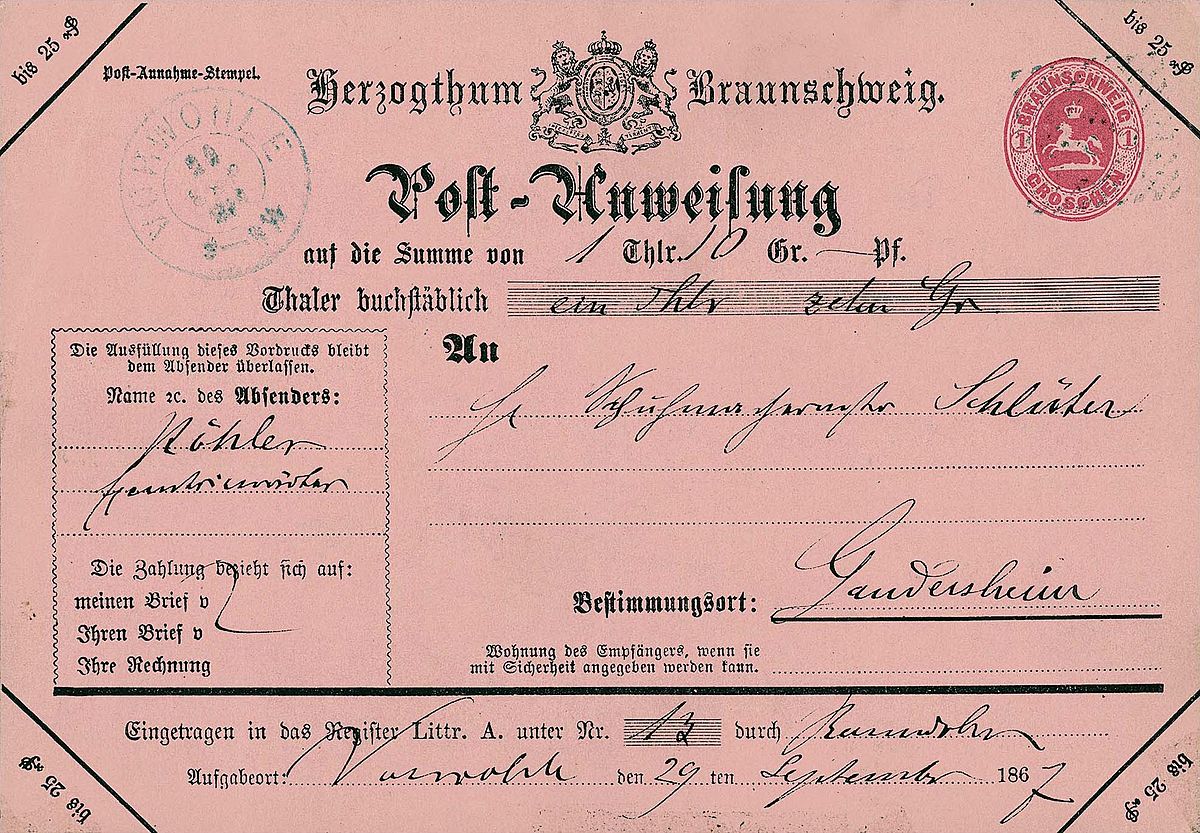 bis 25
bis 25
Post-Annahme-Stempel.
Herzogthum Braunschweig.
VORWOHLE
BRAUNSCHWEIG
1 1
GROSCHEN
Post-Anweisung
auf die Summe von 1 Thlr. 10 Gr. — Pf.
Thaler buchstäblich ein Thlr zehn Gr
Die Ausfüllung dieses Vordrucks bleibt
dem Absender überlassen.
Name ꝛc. des Absenders:
Köhler
An
Schuhmachermstr Schlüter
Die Zahlung bezieht sich auf:
meinen Brief v
Ihren Brief v
Ihre Rechnung
Bestimmungsort: Gandersheim
Wohnung des Empfängers, wenn sie
mit Sicherheit angegeben werden kann.
Eingetragen in das Register Littr. A. unter Nr. 13 durch
Aufgabeort: Vorwohle den 29 ten September 1867
bis 25
bis 25